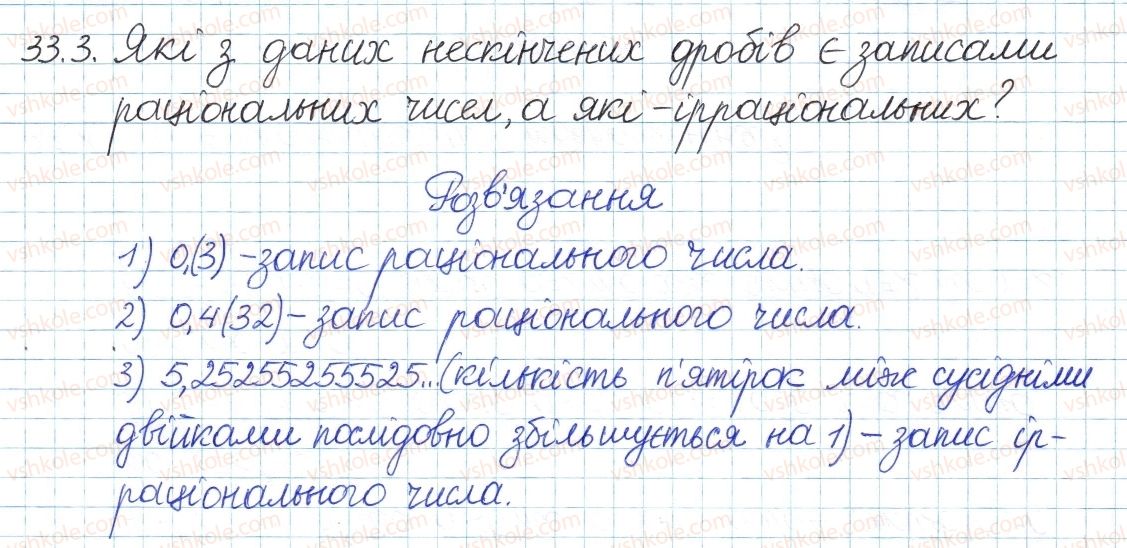 33.3. Які з даних нескінчених дробів є записами
раціональних чисел, а які - ірраціональних?
Розв'язання
1) 0,(3) - запис раціонального числа.
2) 0,4(32) - запис раціонального числа.
3) 5,25255255525...(кількість п'ятірок між сусідніми
двійками послідовно збільшується на 1) - запис ір-
раціонального числа.